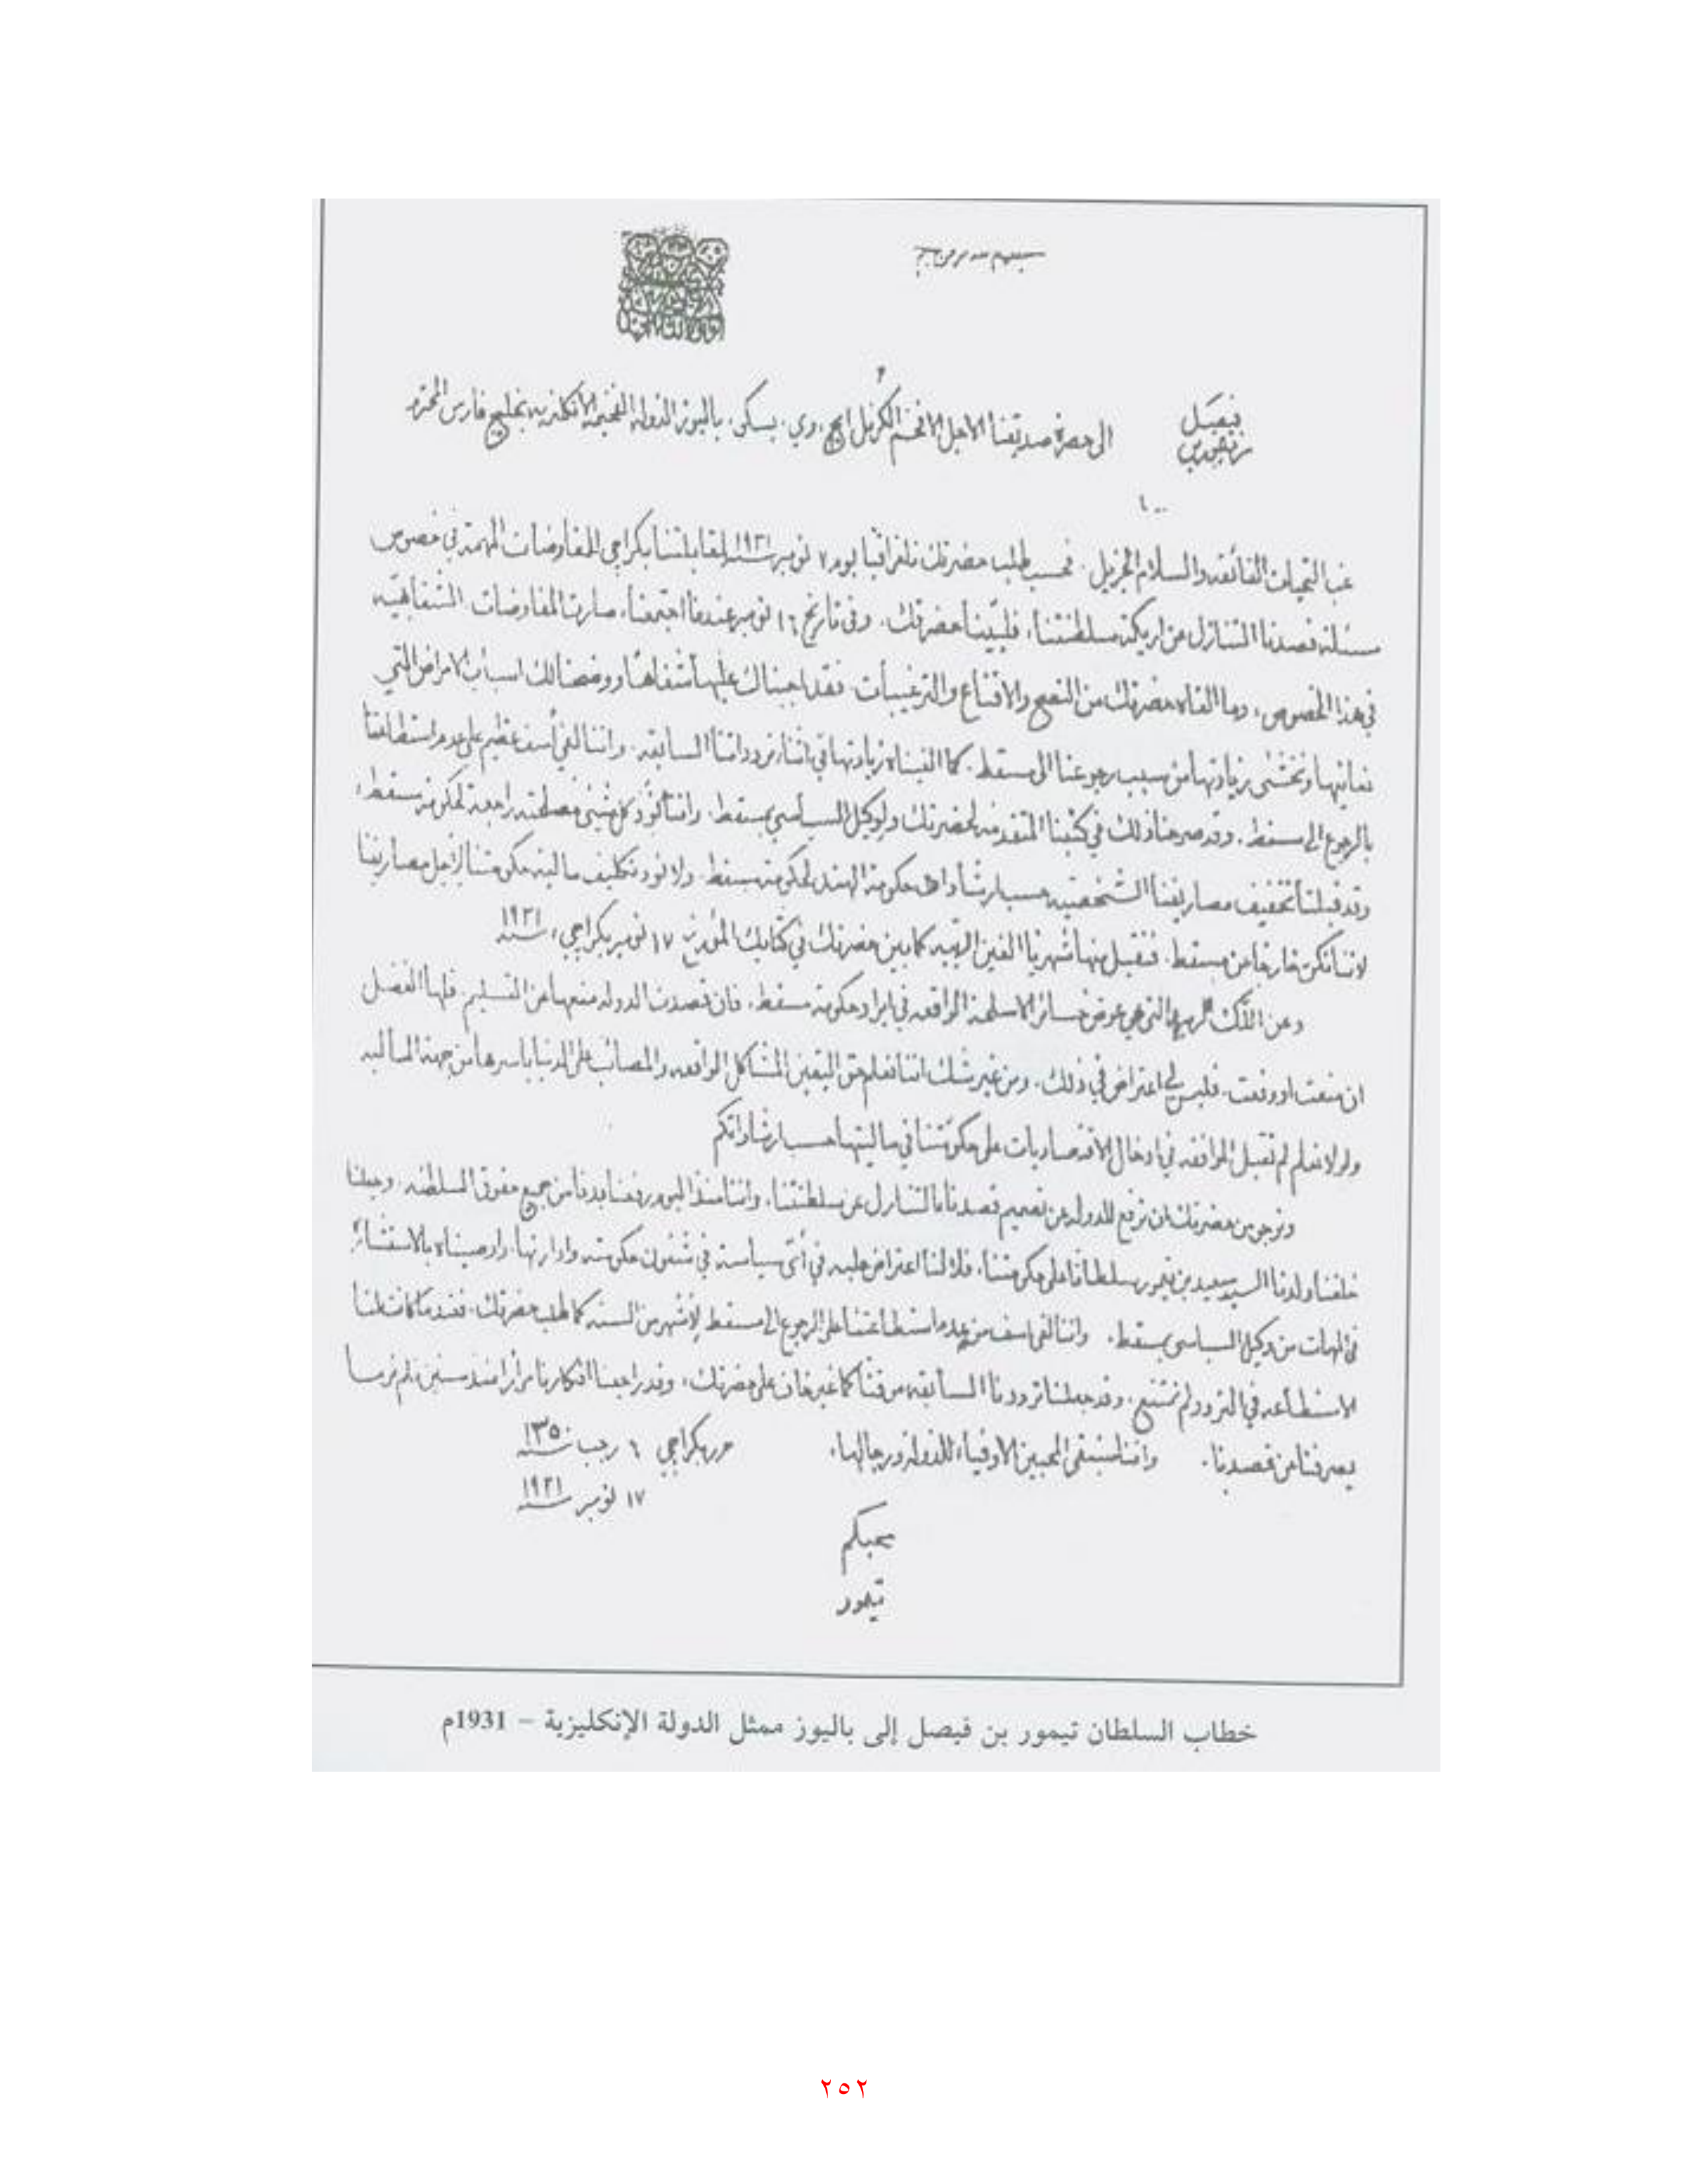 الى حضرة صديقنا الاجل الافخم الكرنل ايچ. وي. بسكى. باليوز الدولة الفخيمة الانكليزيه بخليج فارس المحترم
غب التحيات الفائقه والسلام الجزيل. فحسب طلب حضرتك تلغرافيا يوم ٧ نومبر سنة ١٩٣١ لمقابلتنا بكراچي للمفاوضات المهمة في خصوص
مسئلة قصدنا التنازل عن اريكة سلطنتنا، فلبّينا حضرتك. وفي تاريخ ١٦ نومبر عندما اجتمعنا، صارت المفاوضات الشفاهيه
في هذا الخصوص، وما القاه حضرتك من النصح والاقناع والترغيبات. فقد اجبناك عليها شفاها ووضحنا لك اسباب الامراض التي
نعانيها ونخشى زيادتها من سبب رجوعنا الى مسقط. كما الفيناه زيادتها في اثناء تردداتنا السابقه. واننا لفي أسف عظيم على عدم استطاعتنا
بالرجوع الى مسقط. وقد صرحنا ذلك في كتبنا المتقدمه لحضرتك ولوكيل السياسي بمسقط. واننا نود كل شيئ مصلحته راجعة لحكومة مسقط،
وقد قبلنا تخفيف مصاريفنا الشخصيه حسب ارشادات حكومة الهند لحكومة مسقط. ولا نود تكليف مالية حكومتنا لاجل مصاريفنا
لاننا نكن خارجا من مسقط. فنقبل منها شهريا الفين ربيه كما بين حضرتك في كتابك المؤرخ ١٧ نومبر بكراچي، سنة ١٩٣١
وعن اللّك الربيه التي هي عوض خسائر الاسلحة الواقعه في ايراد حكومة مسقط. فان قصدت الدولة منعها عن التسليم. فلها الفضل
ان منعت او دفعت. فليس لي اعتراض في ذلك. ومن غير شك اننا نعلم حق اليقين المشاكل الواقعه والمصائب على الدنيا باسرها من جهة الماليه
ولولا نعلم لم نقبل الموافقه في ادخال الاقتصاديات على حكومتنا في ماليتها حسب ارشاداتكم
ونرجو من حضرتك ان ترفع للدوله عن تصميم قصدنا بالتنازل عن سلطنتنا. واننا منذ اليوم رفعنا يدنا من جميع حقوق السلطنه. وجعلنا
خلفنا ولدنا السيد سعيد بن تيمور سلطانا على حكومتنا، فلا لنا اعتراض عليه في أيّ سياسة في شئون حكومته وادارتها. واوصيناه بالاستشارة
في المهمات من وكيل السياسي بمسقط. واننا لفي اسف من عدم استطاعتنا على الرجوع الى مسقط لأشهر من السنه كما طلب حضرتك. فعندما كانت لنا
الاستطاعه في التردد لم نمتنع. وقد جعلنا ترددنا السابقه مرقتا كما غير خاف على حضرتك، وقد راجعنا افكارنا مرارا منذ سنين، لم نر ما
يصرفنا من قصدنا. واننا سنبقى المحبين الاوفياء للدوله ورجالها. حرر بكراچي ٦ رجب سنة ١٣٥٠
١٧ نومبر سنة ١٩٣١
محبكم
تيمور
خطاب السلطان تيمور بن فيصل إلى باليوز ممثل الدولة الإنكليزية – 1931م
٢٥٢